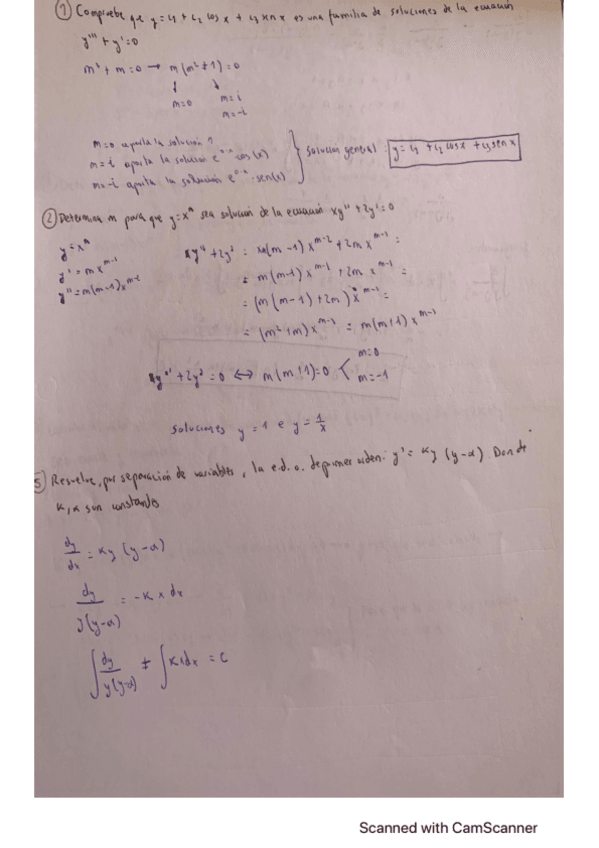 ① Comprueba que y = c₁ + c₂ cos x + c₃ sen x es una familia de soluciones de la ecuación
y''' + y' = 0
m³ + m = 0 → m(m² + 1) = 0
m = 0 m = i
m = -i
m = 0 aporta la solución 1
m = i aporta la solución e^(0·x) cos(x)
m = -i aporta la solución e^(0·x) · sen(x)
solución general: y = c₁ + c₂ cos x + c₃ sen x
② Determina m para que y = x^m sea solución de la ecuación xy'' + 2y' = 0
y = x^m
y' = m x^(m-1)
y'' = m(m-1) x^(m-2)
xy'' + 2y' = x m(m-1) x^(m-2) + 2m x^(m-1) =
= m(m-1) x^(m-1) + 2m x^(m-1) =
= (m(m-1) + 2m) x^(m-1) =
= (m² + m) x^(m-1) = m(m+1) x^(m-1)
xy'' + 2y' = 0 ↔ m(m+1) = 0
m = 0
m = -1
soluciones y = 1 e y = 1/x
⑤ Resuelve, por separación de variables, la e.d.o. de primer orden: y' = κy (y-α). Donde
κ, α son constantes
dy/dx = κy (y-α)
dy/y(y-α) = -κ x dx
∫ dy/y(y-α) ± ∫ κ dx = c
Scanned with CamScanner